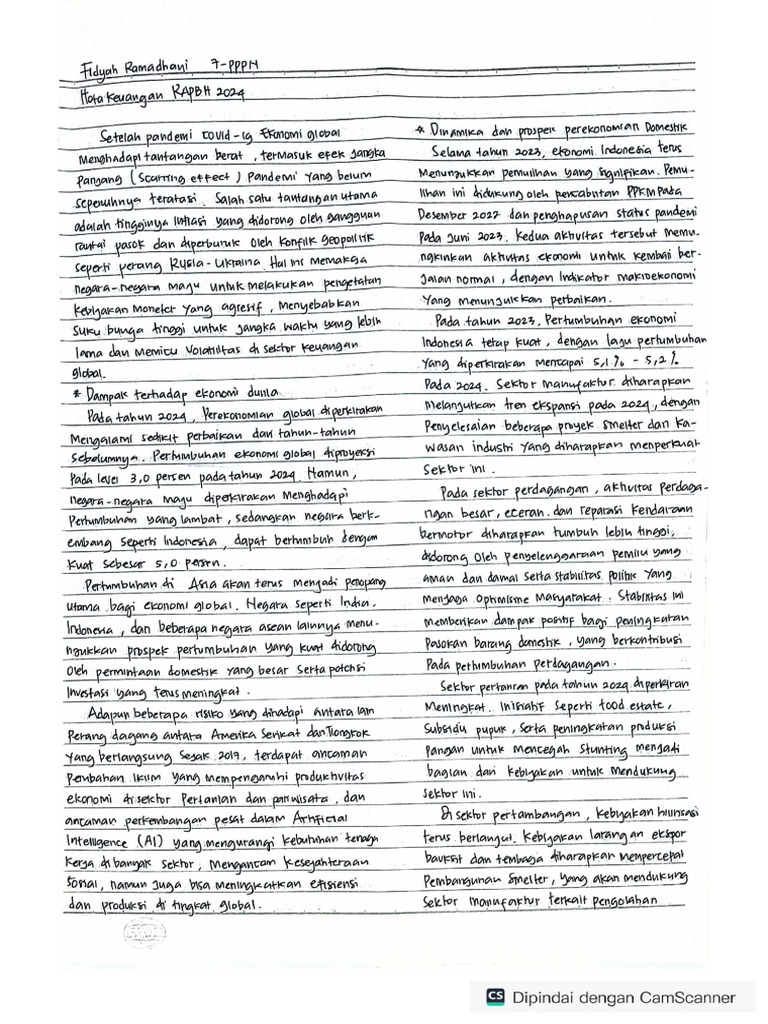 Fidyah Ramadhani 7-PPPN
Nota Keuangan RAPBN 2024
Setelah pandemi covid-19 Ekonomi global
Menghadapi tantangan berat, termasuk efek jangka
Panjang (Scarring effect) Pandemi yang belum
sepenuhnya teratasi. Salah satu tantangan utama
adalah tingginya Inflasi yang didorong oleh gangguan
rantai pasok dan diperburuk oleh Konflik geopolitik
seperti perang Rusia-Ukraina. Hal ini memaksa
negara-negara maju untuk melakukan pengetatan
Kebijakan Moneter yang agresif, Menyebabkan
Suku bunga tinggi untuk jangka waktu yang lebih
lama dan Memicu Volatilitas di sektor keuangan
global.
* Dampak terhadap ekonomi dunia
Pada tahun 2024, Perekonomian global diperkirakan
Mengalami sedikit perbaikan dari tahun-tahun
Sebelumnya. Pertumbuhan ekonomi global diproyeksi
Pada level 3,0 persen pada tahun 2024. Namun,
negara-negara maju diperkirakan Menghadapi
Pertumbuhan yang lambat, sedangkan negara berk-
embang seperti Indonesia, dapat bertumbuh dengan
Kuat sebesar 5,0 persen.
Pertumbuhan di Asia akan terus menjadi penopang
utama bagi ekonomi global. Negara seperti India,
Indonesia, dan beberapa negara asean lainnya menu-
ngukkan prospek pertumbuhan yang kuat didorong
Oleh permintaan domestik yang besar serta potensi
Investasi yang terus meningkat.
Adapun beberapa risiko yang dihadapi antara lain
Perang dagang antara Amerika Serikat dan Tiongkok
Yang berlangsung Sejak 2019, terdapat ancaman
Perubahan Iklim yang mempengaruhi produktivitas
ekonomi di sektor Pertanian dan pariwisata, dan
ancaman perkembangan pesat dalam Artificial
Intelligence (AI) yang mengurangi kebutuhan tenaga
Kerja di banyak sektor, Mengancam Kesejahteraan
Sosial, namun Juga bisa meningkatkan efisiensi
dan produksi di tingkat global.
* Dinamika dan prospek perekonomian Domestik
Selama tahun 2023, ekonomi Indonesia terus
Menunjukkan pemulihan yang signifikan. Pemu-
lihan ini didukung oleh pencabutan PPKM Pada
Desember 2022 dan penghapusan status pandemi
Pada Juni 2023. Kedua aktivitas tersebut memu-
ngkinkan aktivitas ekonomi untuk kembali ber-
Jalan normal, dengan Indikator makroekonomi
Yang menunjukkan perbaikan.
Pada tahun 2023, Pertumbuhan ekonomi
Indonesia tetap kuat, dengan laju pertumbuhan
Yang diperkirakan mencapai 5,1% - 5,2%.
Pada 2024. Sektor manufaktur diharapkan
Melanjutkan tren ekspansi pada 2024, dengan
Penyelesaian beberapa proyek smelter dan Ka-
wasan industri yang diharapkan memperkuat
Sektor ini.
Pada sektor perdagangan, aktivitas perdaga-
ngan besar, eceran, dan reparasi Kendaraan
bermotor diharapkan tumbuh lebih tinggi,
didorong oleh penyelenggaraan pemilu yang
aman dan damai serta stabilitas politik yang
Menjaga Optimisme Masyarakat. Stabilitas ini
memberikan dampak positif bagi peningkatan
Pasokan barang domestik, yang berkontribusi
Pada pertumbuhan perdagangan.
Sektor pertanian pada tahun 2024 diperkiran
Meningkat. Inisiatif Seperti food estate,
Subsidi pupuk, serta peningkatan produksi
Pangan untuk Mencegah Stunting menjadi
bagian dari kebijakan untuk mendukung
sektor ini.
Di sektor pertambangan, kebijakan hilirisasi
terus berlanjut. Kebijakan larangan ekspor
bauksit dan tembaga diharapkan mempercepat
Pembangunan Smelter, yang akan mendukung
Sektor manufaktur terkait pengolahan
CS Dipindai dengan CamScanner